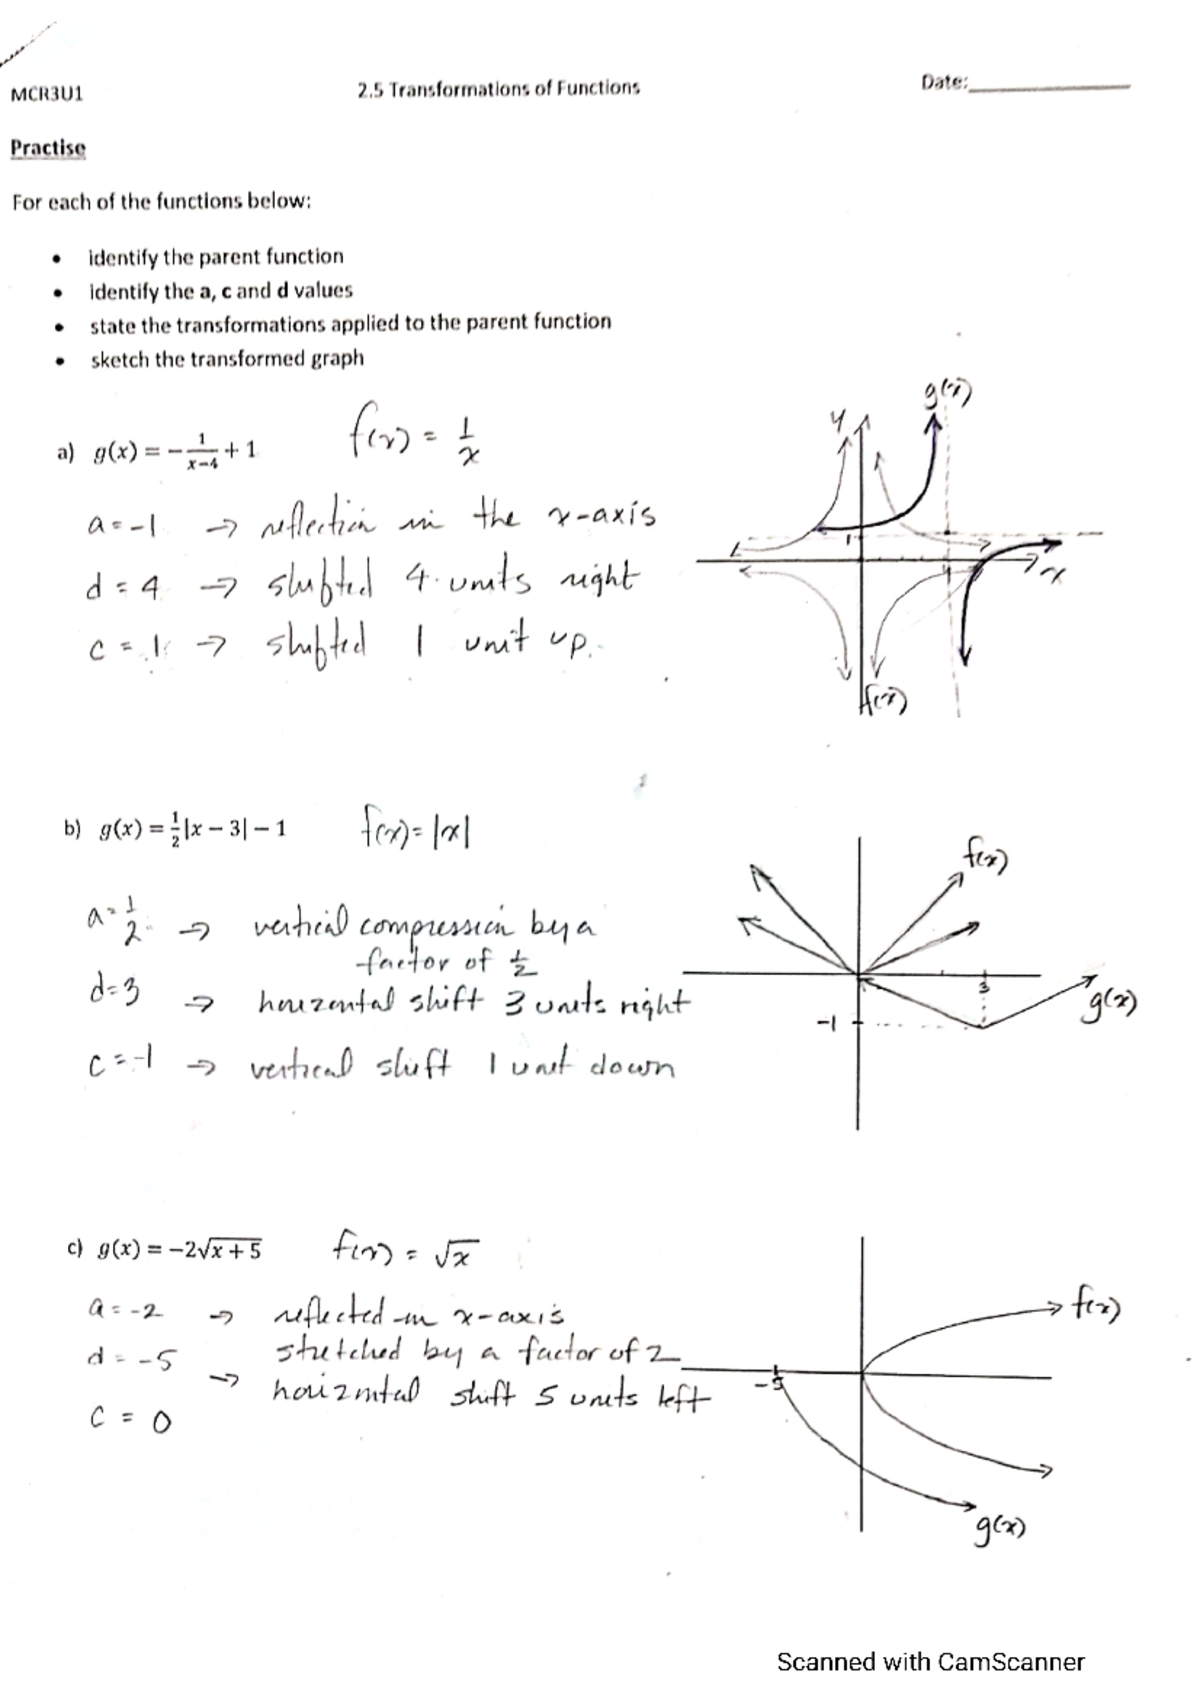 MCR3U1 2.5 Transformations of Functions Date:
Practise
For each of the functions below:
• identify the parent function
• identify the a, c and d values
• state the transformations applied to the parent function
• sketch the transformed graph
a) g(x) = −1/(x−4) + 1 f(x) = 1/x
a = -1 → reflection in the x-axis
d = 4 → shifted 4 units right
c = 1 → shifted 1 unit up.
y
g(x)
1
4
x
f(x)
b) g(x) = 1/2|x − 3| − 1 f(x) = |x|
a = 1/2 → vertical compression by a
factor of 1/2
d = 3 → horizontal shift 3 units right
c = -1 → vertical shift 1 unit down
f(x)
3
g(x)
-1
c) g(x) = −2√x + 5 f(x) = √x
a = -2 → reflected in x-axis
stretched by a factor of 2
d = -5 → horizontal shift 5 units left
c = 0
f(x)
-5
g(x)
Scanned with CamScanner